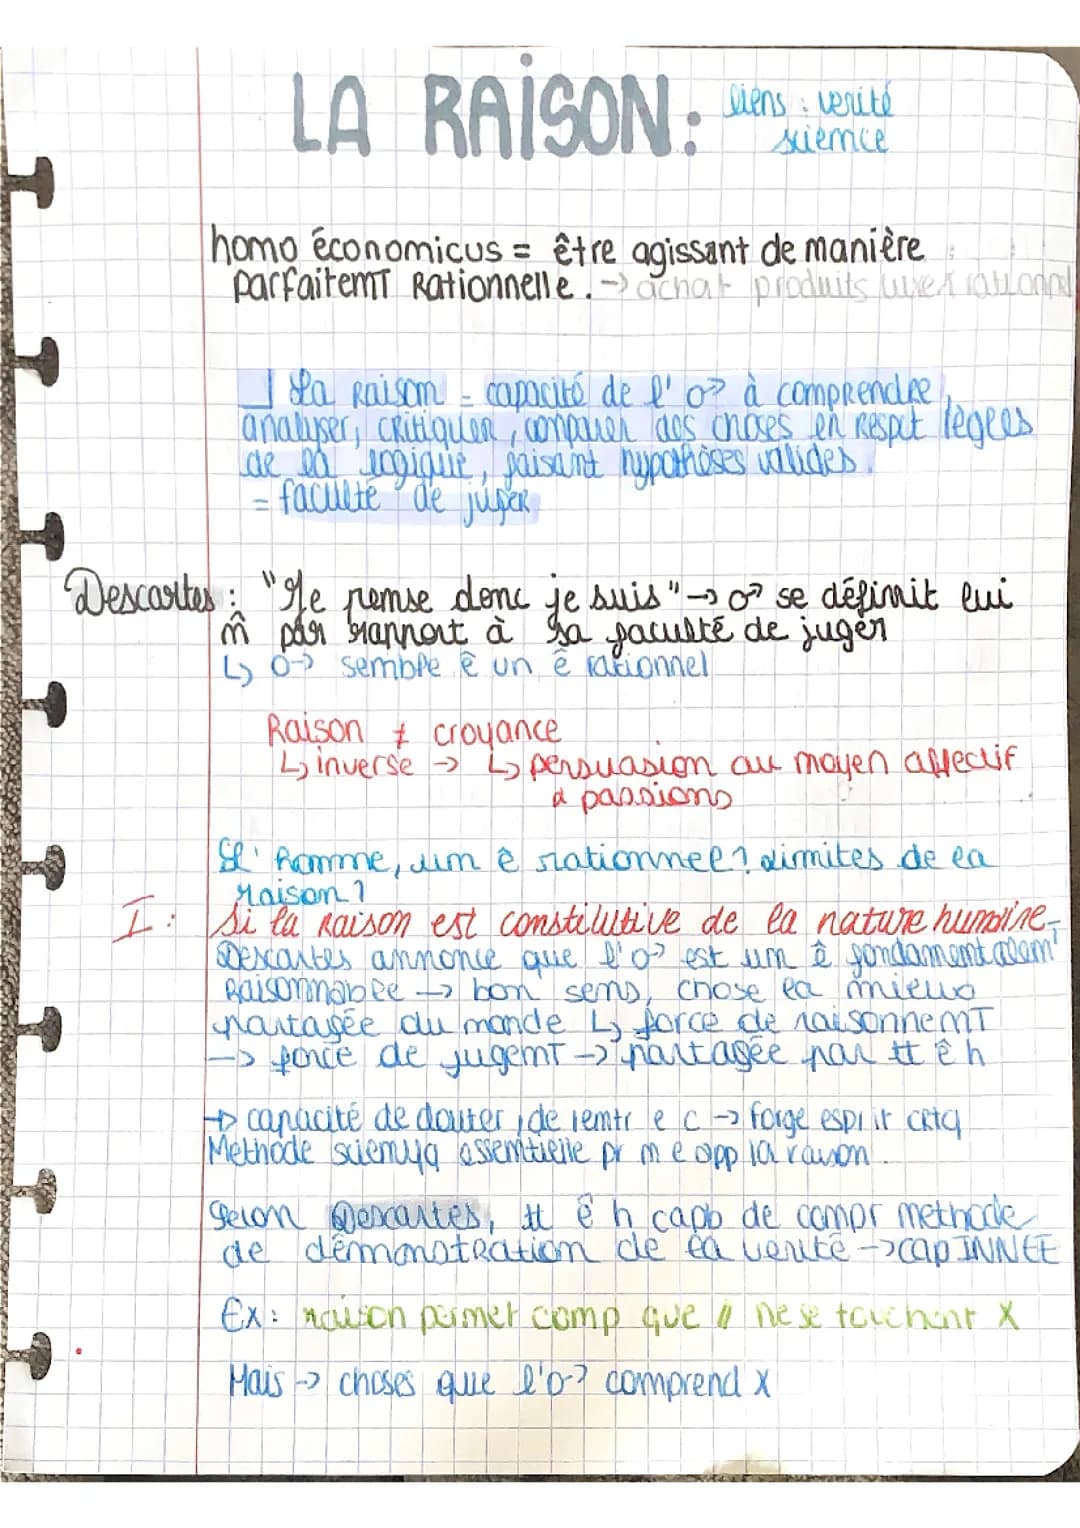 LA RAISON : liens : verité
science
homo économicus = être agissant de manière
parfaitemT Rationnelle. → achat produits
La Raison = capacité de l' ♂ à comprendre,
analyser, critiquer, comparer des choses en respct règles
de la logique, faisant hypothèses valides.
= faculté de juger
Descartes : "Je pense donc je suis" → ♂ se définit lui
m̂ par rapport à sa faculté de juger
↳ ♂ semble ê un ê rationnel
Raison ≠ croyance
↳ inverse → ↳ persuasion au moyen affectif
& passions
L'homme, un ê rationnel ? Limites de la
raison ?
I : Si la Raison est constitutive de la nature humaine,
Descartes annonce que l'♂ est un ê
Raisonnable → bon sens, chose la mieux
partagée du monde ↳ force de raisonnemT
→ force de jugemT → partagée par tt ê h
→ capacité de douter, de remtr e c → forge esprit crtq
Méthode essentielle pr m e app la raison.
Selon Descartes, tt ê h capb de compr méthode
de démonstration de la vérité → cap INNÉE
Ex : raison permet comp que // ne se touchent X
Mais → choses que l'♂ comprend x